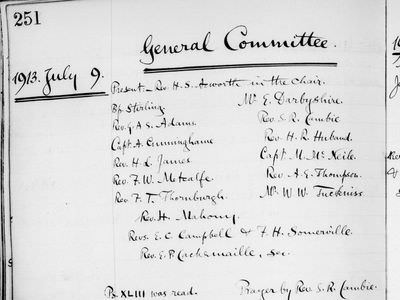 251
General Committee.
1913. July 9.
Present - Rev. H. S. Acworth in the chair.
Bp Stirling.
Mr. E. Darbyshire.
Rev. G. A. S. Adams.
Rev. S. R. Cambie
Capt A. Cunninghame
Rev. H. R. Huband.
Rev. H. L. James
Capt M. McNeile.
Rev. F. W. Metcalfe.
Rev. A. E. Thompson.
Rev. F. T. Thornburgh.
Mr. W. W. Tuckniss.
Rev. H. Mahony.
Revs. E. C. Campbell & F. H. Somerville.
Rev. E. P. Cachemaille, Sec.
Ps. XLIII was read.
Prayer by Rev. S. R. Cambie.